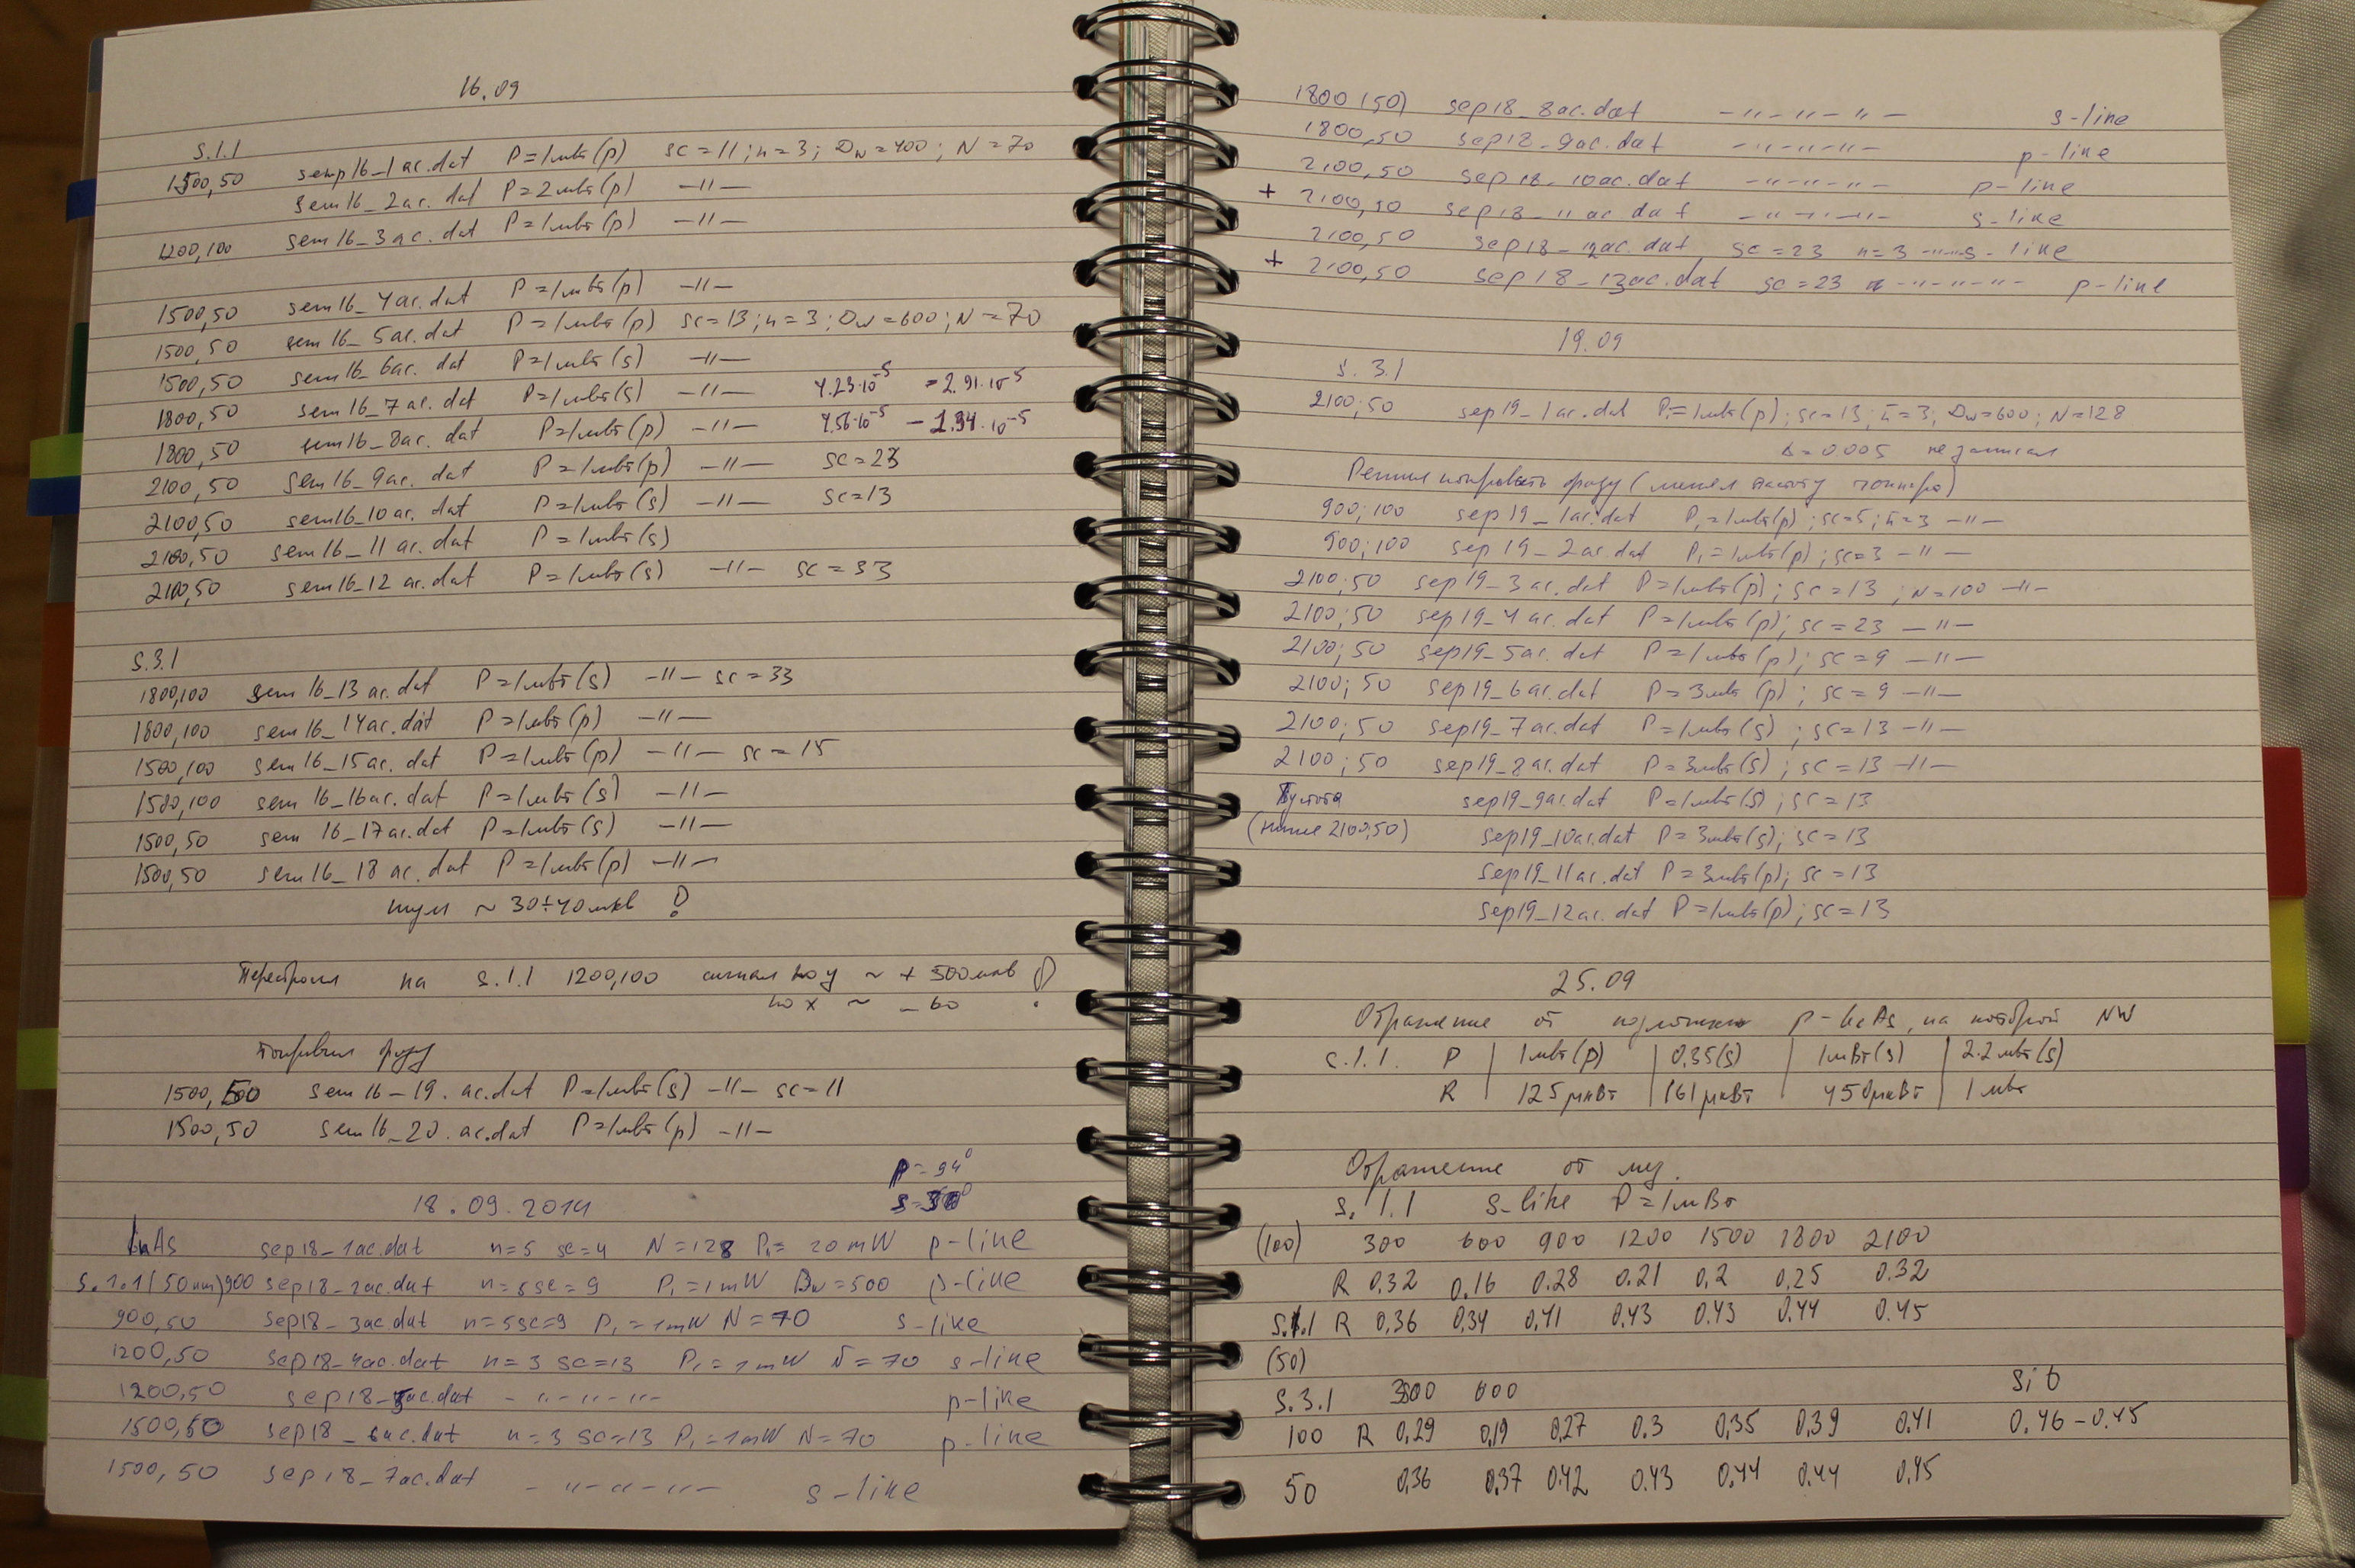 16.09
S.1.1
1500,50 semp16_1ac.dat P=1мВт(p) sc=11; n=3; Dw=400; N=70
sem16_2ac.dat P=2мВт(p) -"-
1200,100 sem16_3ac.dat P=1мВт(p) -"-
1500,50 sem16_4ac.dat P=1мВт(p) -"-
1500,50 sem16_5ac.dat P=1мВт(p) sc=13; n=3; Dw=600; N=70
1500,50 sem16_6ac.dat P=1мВт(s) -"-
1800,50 sem16_7ac.dat P=1мВт(s) -"- 4.23·10⁻⁵ - 2.91·10⁻⁵
1800,50 sem16_8ac.dat P=1мВт(p) -"- 4.56·10⁻⁵ - 1.94·10⁻⁵
2100,50 sem16_9ac.dat P=1мВт(p) -"- sc=23
2100,50 sem16_10ac.dat P=1мВт(s) -"- sc=13
2100,50 sem16_11ac.dat P=1мВт(s)
2100,50 sem16_12ac.dat P=1мВт(s) -"- sc=33
S.3.1
1800,100 sem16_13ac.dat P=1мВт(s) -"- sc=33
1800,100 sem16_14ac.dat P=1мВт(p) -"-
1500,100 sem16_15ac.dat P=1мВт(p) -"- sc=15
1500,100 sem16_16ac.dat P=1мВт(s) -"-
1500,50 sem16_17ac.dat P=1мВт(s) -"-
1500,50 sem16_18ac.dat P=1мВт(p) -"-
шум ~ 30÷40мкв !
Перестроил на S.1.1 1200,100 сигнал по y ~ + 500мкв !
по x ~ -60
Поправил фазу
1500,50 sem16-19.ac.dat P=1мВт(s) -"- sc=11
1500,50 sem16_20.ac.dat P=1мВт(p) -"-
p=94°
18.09.2014
GaAs sep18-1ac.dat n=5 sc=4 N=128 P₁=20mW p-like
S.1.1(50nm) 900 sep18-2ac.dat n=5 sc=9 P₁=1mW Dw=500 p-like
900,50 sep18-3ac.dat n=5 sc=9 P₁=1mW N=70 s-like
1200,50 sep18-4ac.dat n=3 sc=13 P₁=1mW N=70 s-like
1200,50 sep18-5ac.dat -"-"-"- p-like
1500,50 sep18-6ac.dat n=3 sc=13 P₁=1mW N=70 p-like
1500,50 sep18-7ac.dat -"-"-"- s-like
1800(50) sep18_8ac.dat -"-"-"- s-like
1800,50 sep18-9ac.dat -"-"-"- p-like
2100,50 sep18-10ac.dat -"-"-"- p-like
+ 2100,50 sep18-11ac.dat -"-"-"- s-like
2100,50 sep18-12ac.dat sc=23 n=3 -"-"- s-like
+ 2100,50 sep18-13ac.dat sc=23 -"-"-"- p-like
19.09
S.3.1
2100;50 sep19_1ac.dat P₁=1мВт(p); sc=13; n=3; Dw=600; N=128
Δ=0.005 не записал
Решил поправить фазу (менял частоту чоппера)
900;100 sep19_1ac.dat P₁=1мВт(p); sc=5; n=3 -"-
900;100 sep19_2ac.dat P₁=1мВт(p); sc=3 -"-
2100;50 sep19_3ac.dat P=1мВт(p); sc=13; N=100 -"-
2100;50 sep19_4ac.dat P=1мВт(p); sc=23 -"-
2100;50 sep19_5ac.dat P=1мВт(p); sc=9 -"-
2100;50 sep19_6ac.dat P=3мВт(p); sc=9 -"-
2100;50 sep19_7ac.dat P=1мВт(s); sc=13 -"-
2100;50 sep19_8ac.dat P=3мВт(s); sc=13 -"-
Пустота sep19_9ac.dat P=1мВт(s); sc=13
(ниже 2100,50) sep19_10ac.dat P=3мВт(s); sc=13
sep19_11ac.dat P=3мВт(p); sc=13
sep19_12ac.dat P=1мВт(p); sc=13
25.09
Отражение от подложки p-GaAs, на которой NW
S.1.1. P | 1мВт(p) | 0.35(s) | 1мВт(s) | 2.2мВт(s)
R | 125мкВт | 161мкВт | 450мкВт | 1мВт
Отражение от
S.1.1 s-like P=1мВт
(100) 300 600 900 1200 1500 1800 2100
R 0,32 0,16 0.28 0.21 0,2 0,25 0.32
S.1.1 R 0,36 0,34 0,41 0,43 0.43 0.44 0.45
(50)
S.3.1 300 600 Si б
100 R 0,29 0,19 0,27 0.3 0,35 0,39 0,41 0.46-0.45
50 0,36 0,37 0.42 0.43 0,44 0.44 0,45